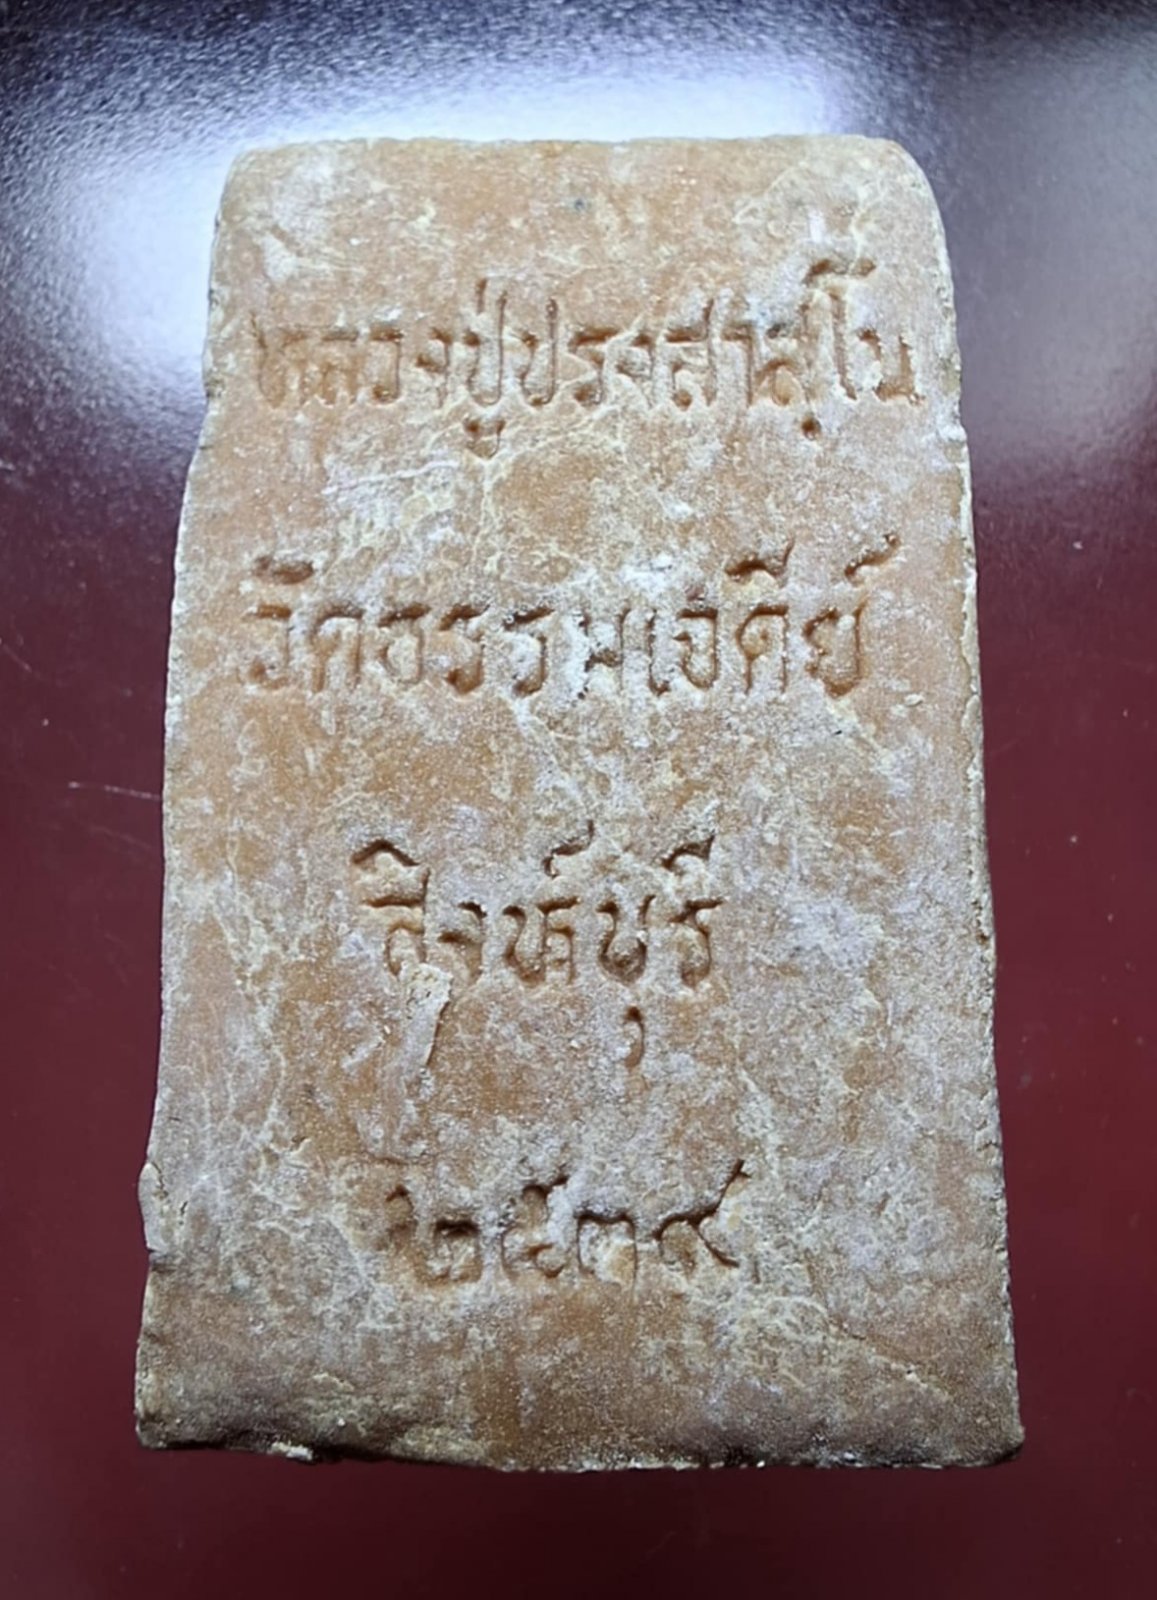 หลวงปู่ปรงสาสุโน
วัดธรรมเจดีย์
สิงห์บุรี
๒๕๓๙